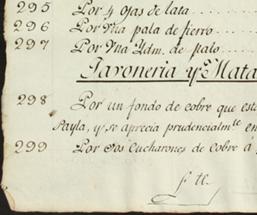 295 Por 4 ojas de lata
296 Por Vna pala de fierro
297 Por Vna Idm. de palo
Javoneria y Mata
298 Por un fondo de cobre que est
Payla, y se aprecia prudencialmte. en
299 Por dos Cucharones de cobre á